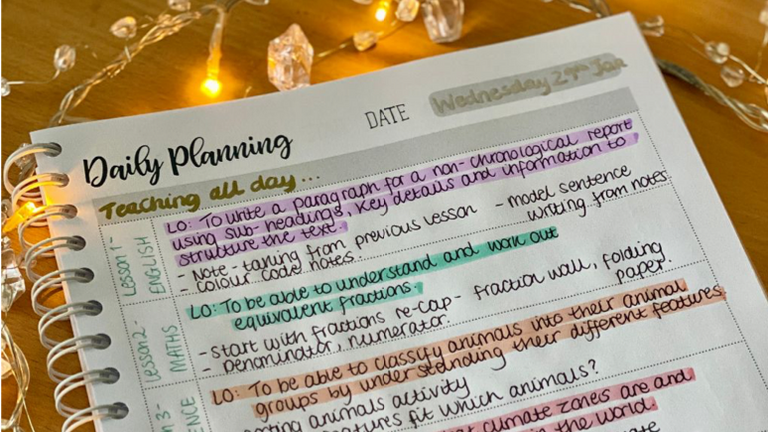 Daily Planning
DATE
Wednesday 29th Jan
Teaching all day...
Lesson 1 -
ENGLISH
LO: To write a paragraph for a non-chronological report
using sub-headings, key details and information to
structure the text.
- Note-taking from previous lesson - model sentence
- colour code notes. writing from notes.
Lesson 2 -
MATHS
LO: To be able to understand and work out
equivalent fractions.
- Start with fractions re-cap - fraction wall, folding
- Denominator, numerator. paper.
3 -
ENCE
LO: To be able to classify animals into their animal
groups by understanding their different features.
animals activity
fit which animals?
climate zones are and
in the world.